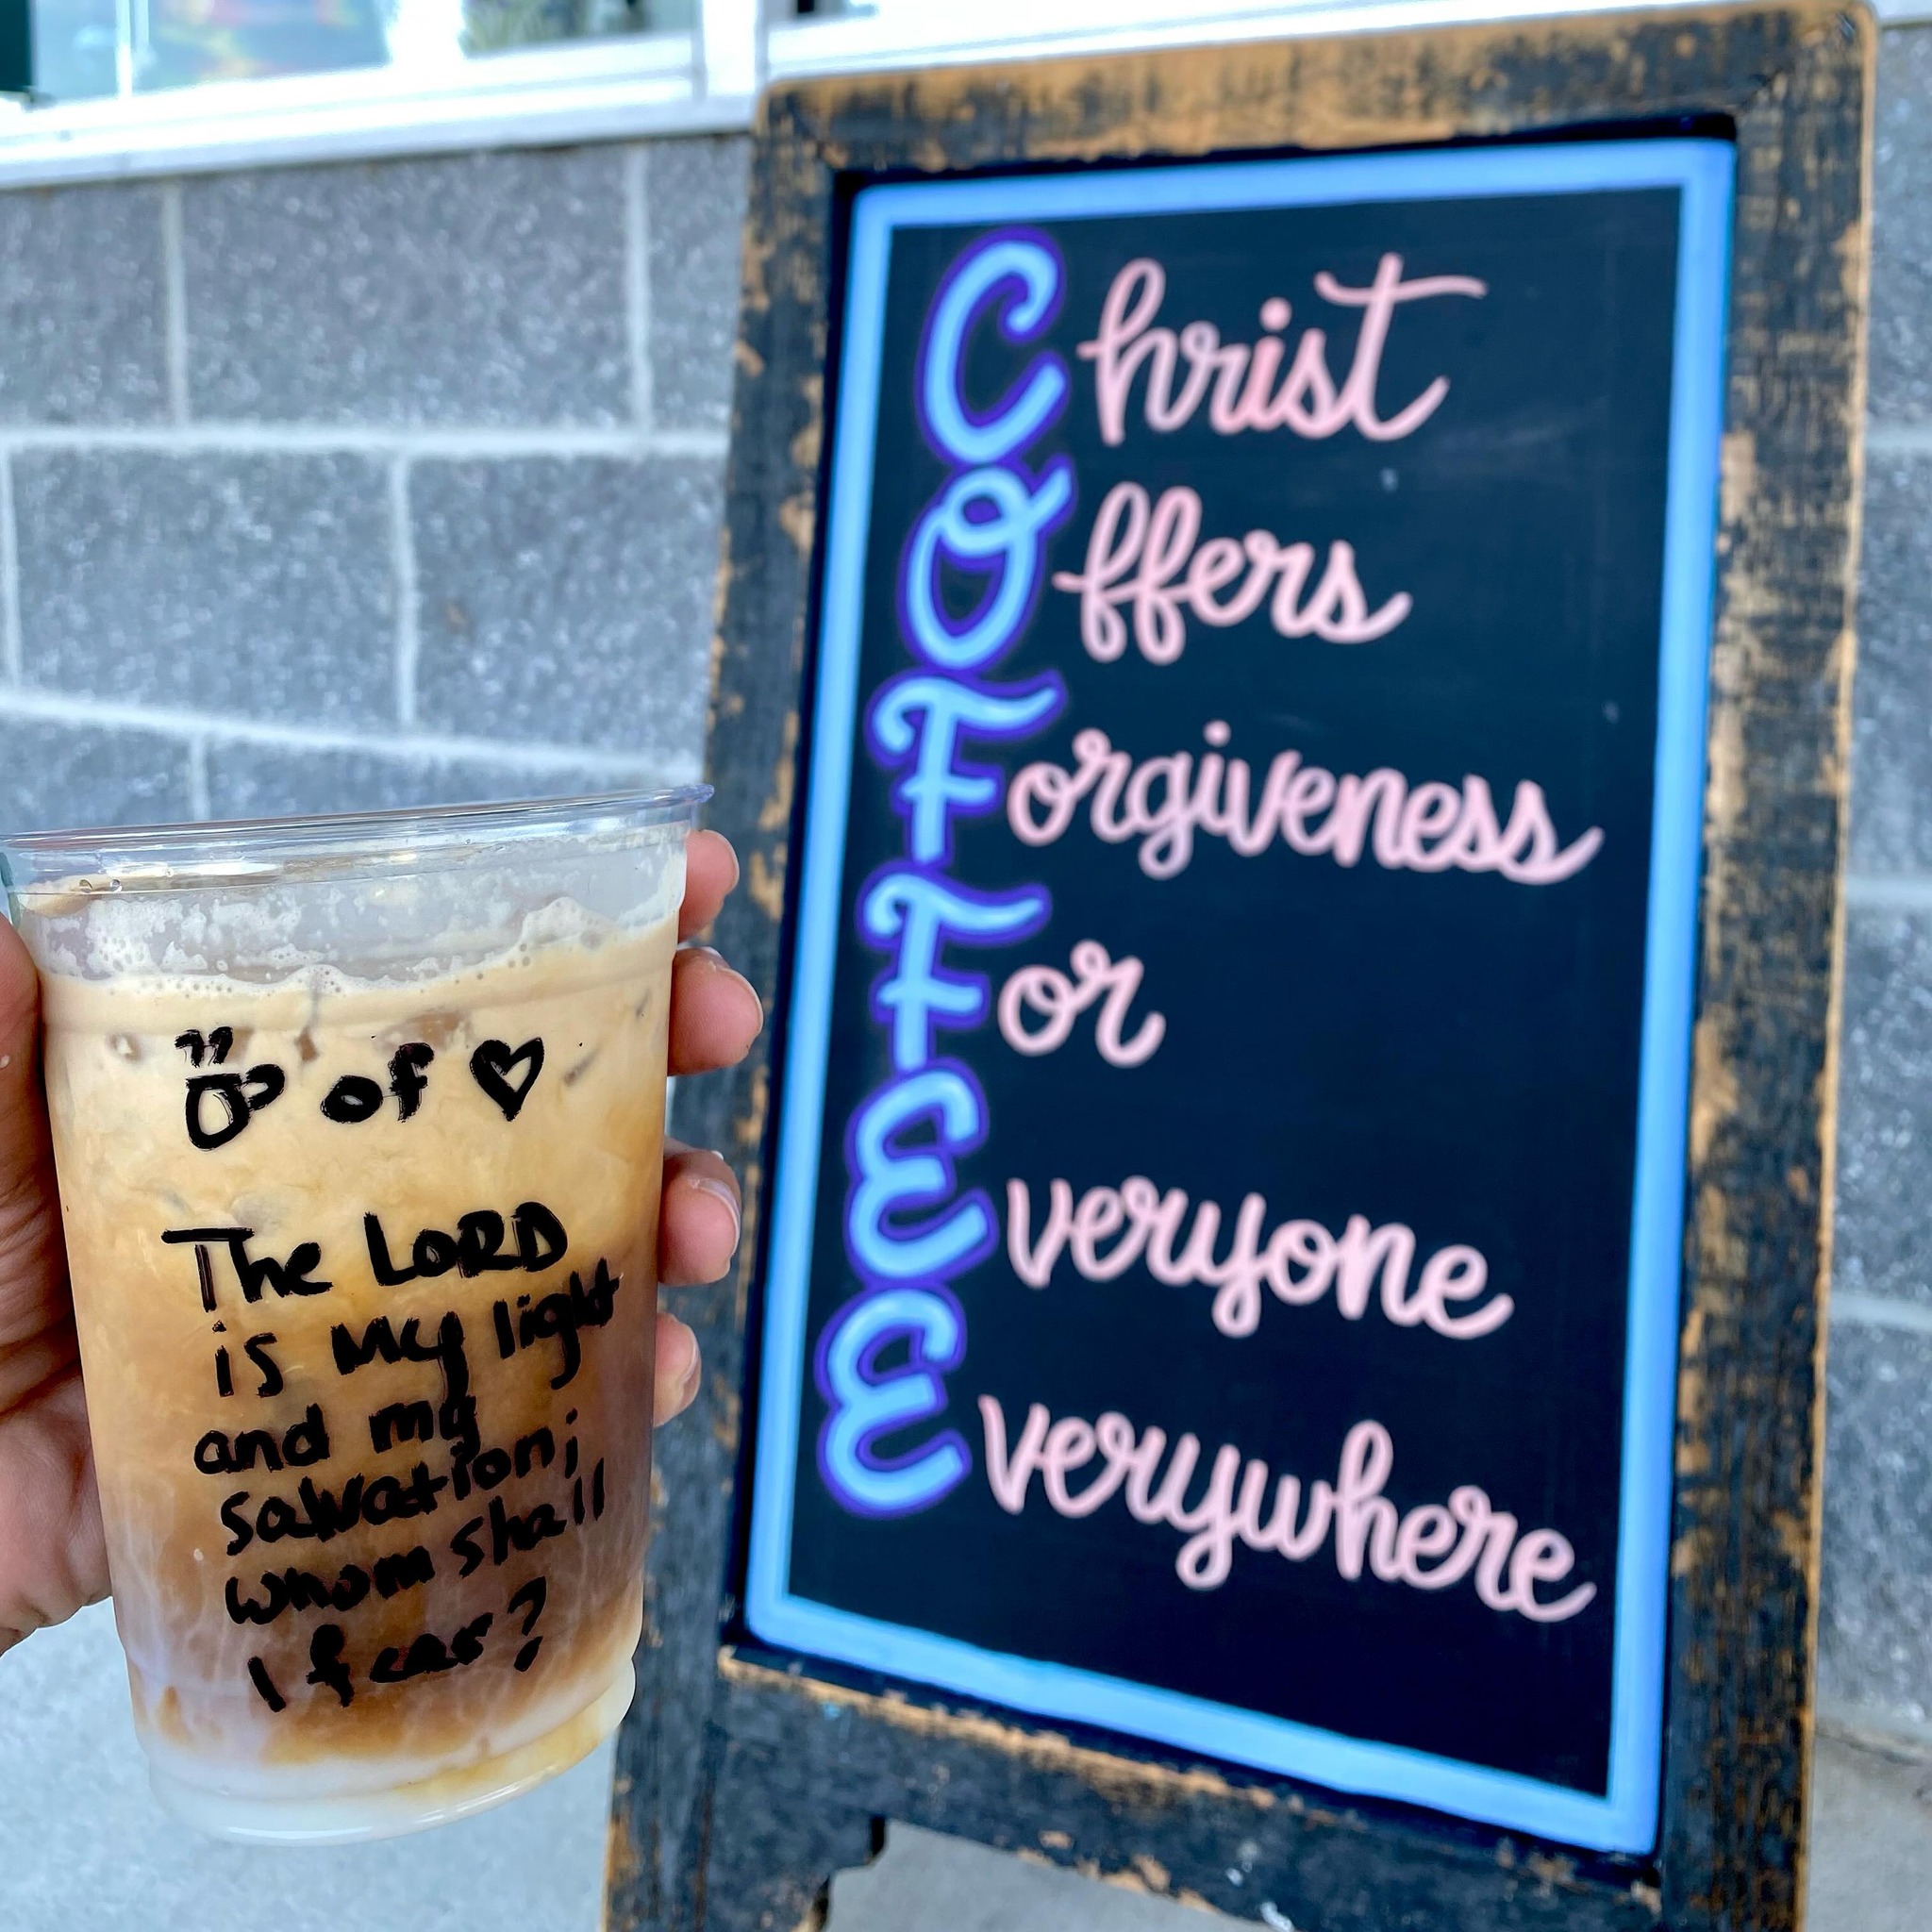 of
The LORD
is my light
and my
salvation;
whom shall
I fear?
Christ
Offers
Forgiveness
For
Everyone
Everywhere